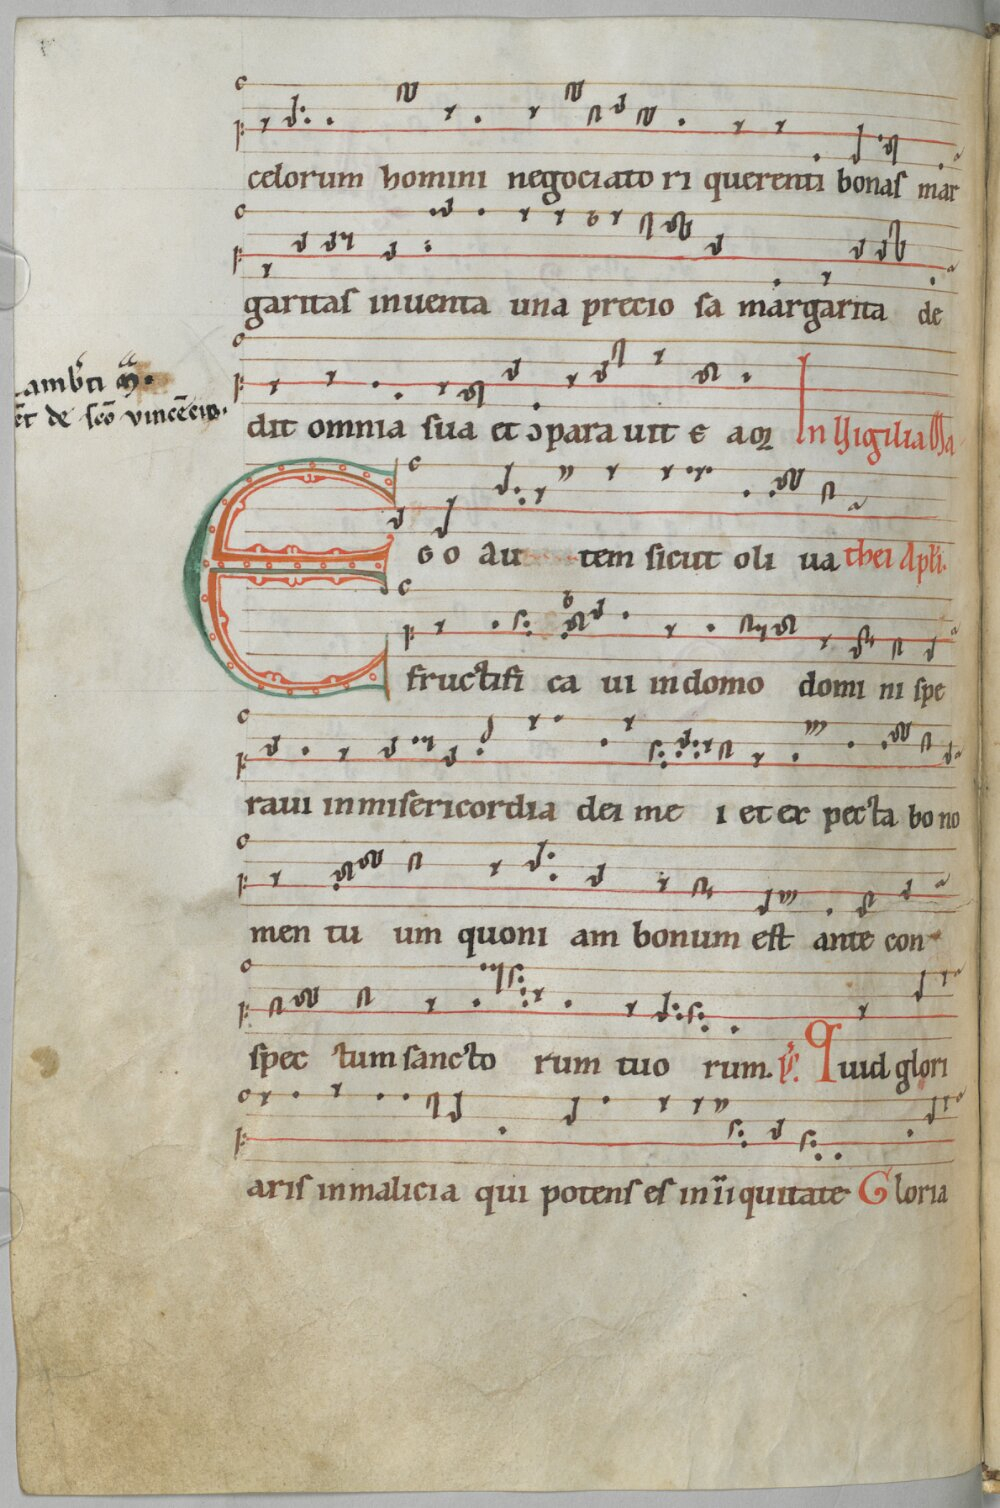 celorum homini negociato ri querenti bonas mar
garitas inuenta una precio sa margarita de
dit omnia sua et ↄpara uit e aꝙ In Uigilia Ma
et de sc̄o vincēcio.
E GO Au tem sicut oli ua thei Apłi.
fructifi ca ui indomo domi ni spe
raui inmisericordia dei me i et ex pecta bo no
men tu um quoni am bonum est ante con
spec tum sancto rum tuo rum. Ps. Quid glori
aris inmalicia qui potens es iniiquitate Gloria